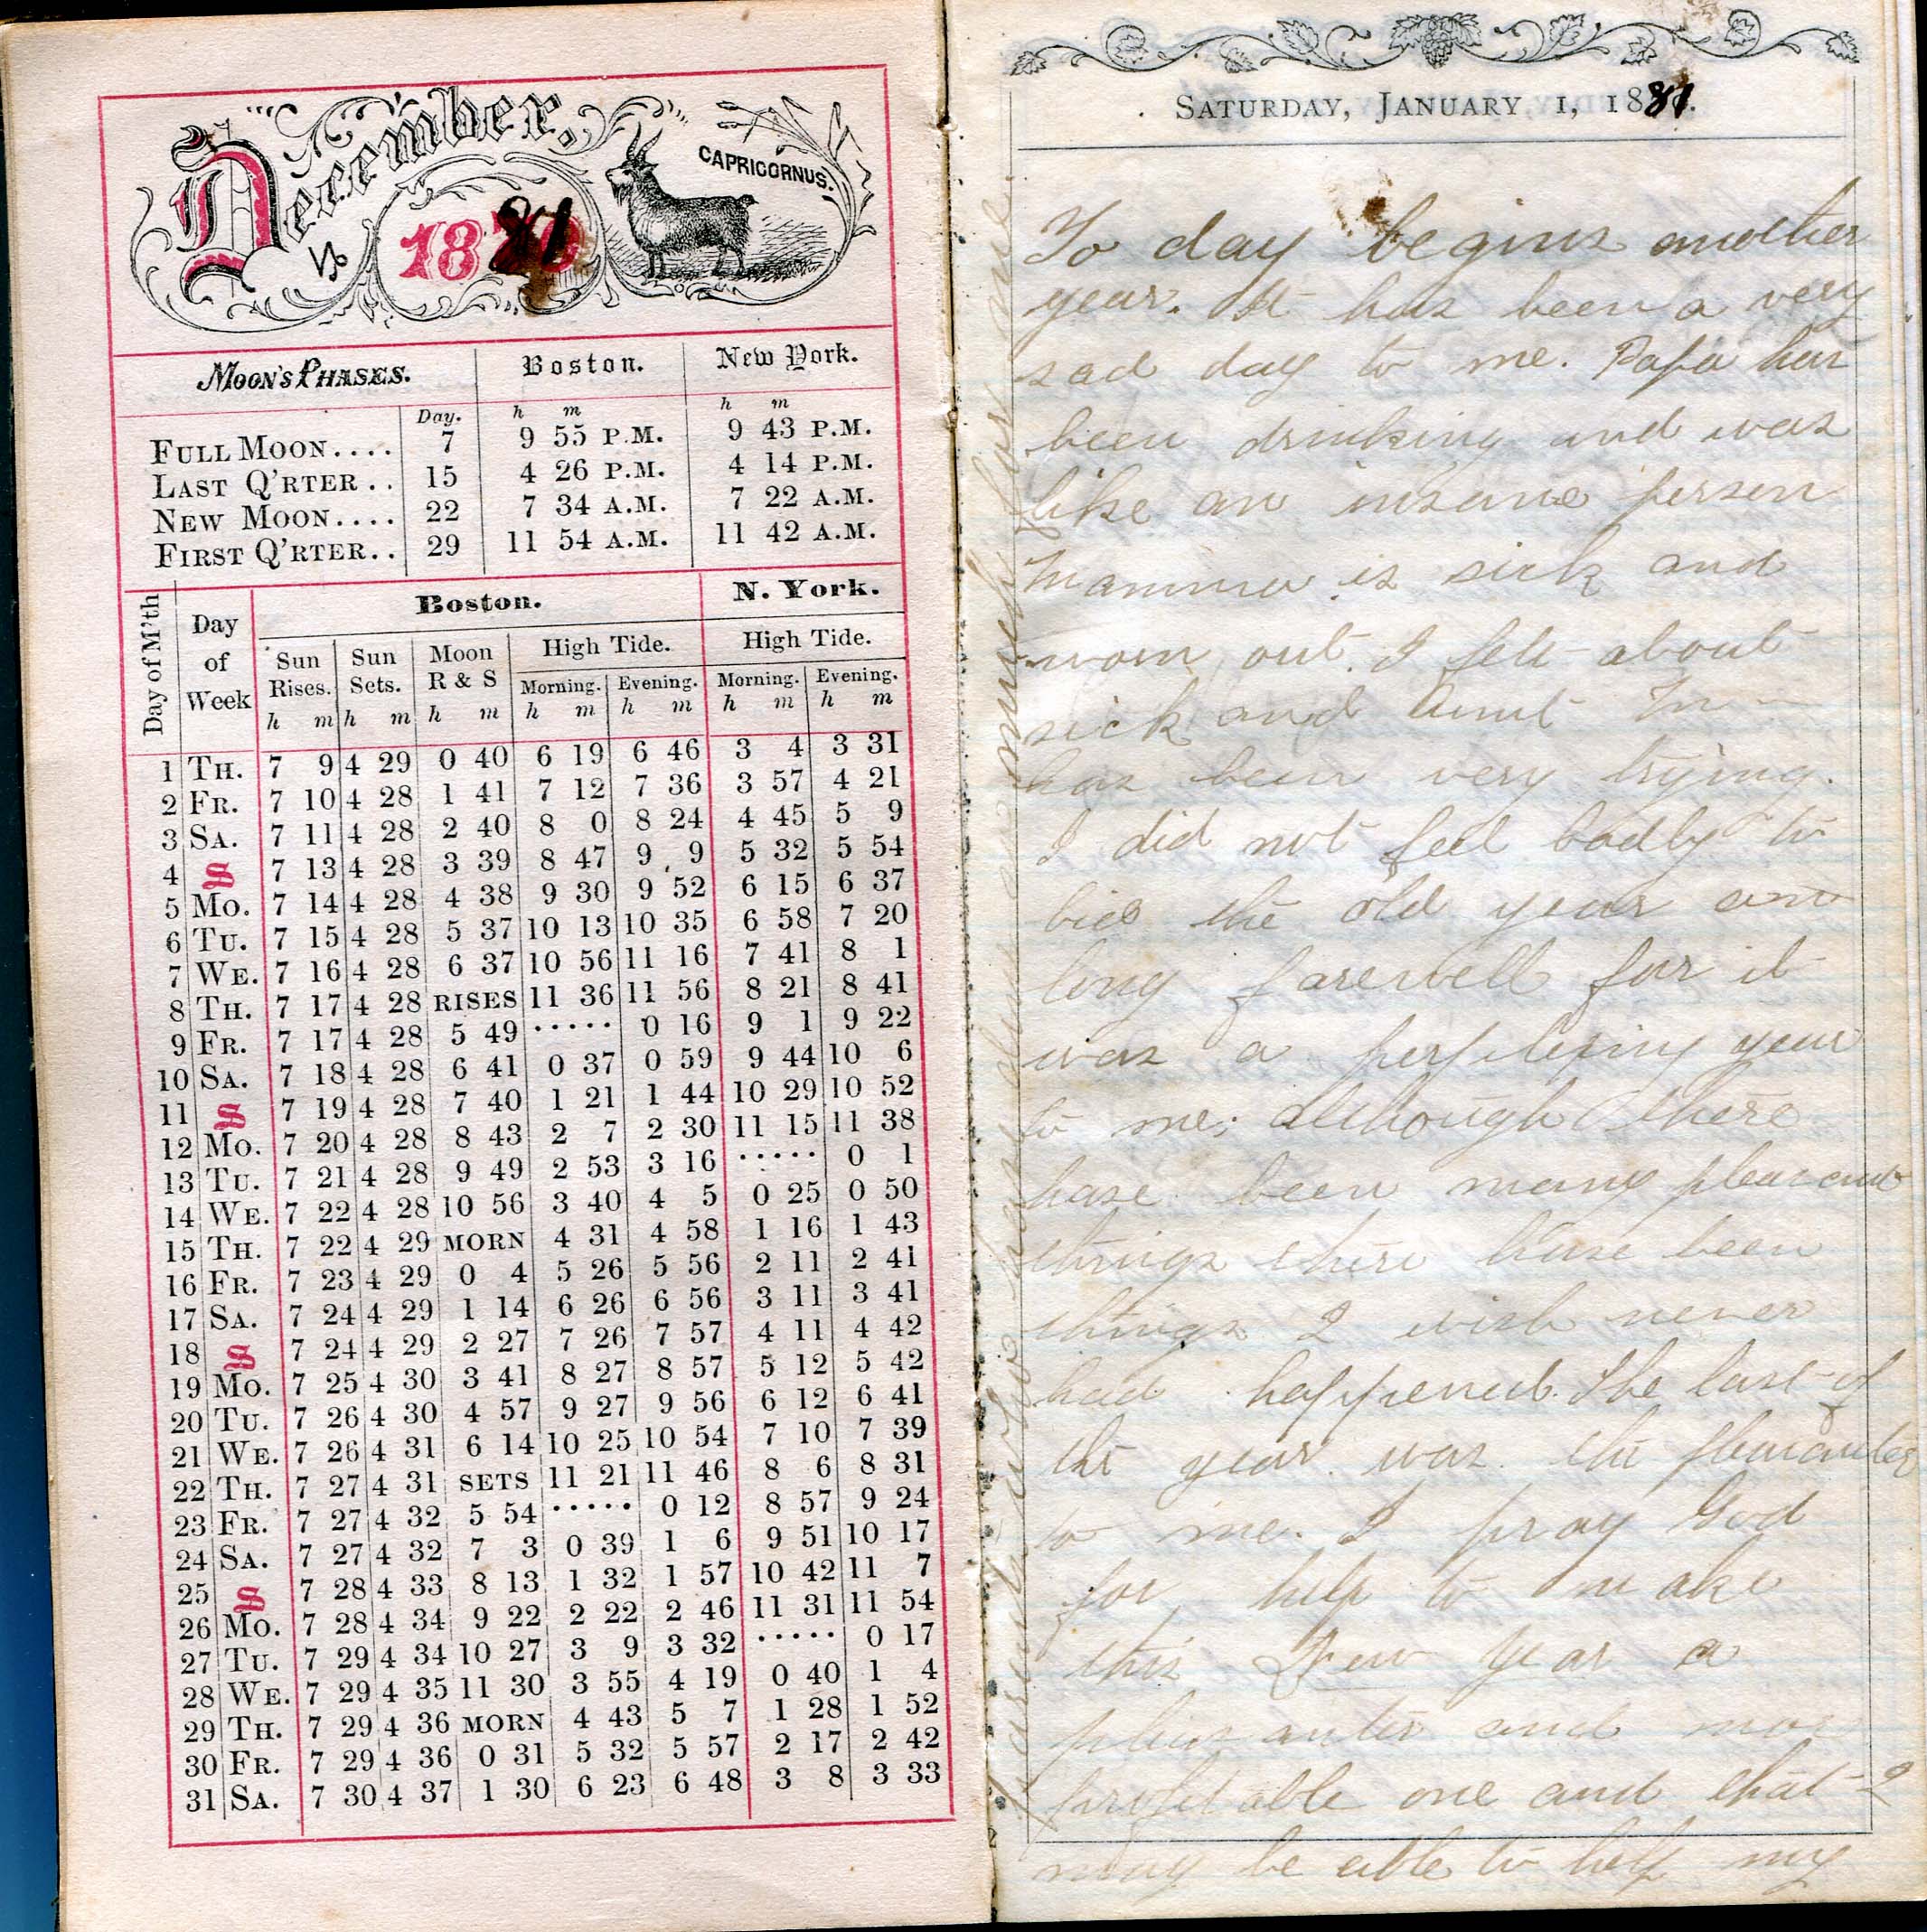 December,
CAPRICORNUS.
1881
MOON'S PHASES. Boston. New York.
Day. h m h m
FULL MOON.... 7 9 55 P.M. 9 43 P.M.
LAST Q'RTER.. 15 4 26 P.M. 4 14 P.M.
NEW MOON.... 22 7 34 A.M. 7 22 A.M.
FIRST Q'RTER.. 29 11 54 A.M. 11 42 A.M.
Day of M'th Day of Week Boston. N. York.
Sun Rises. Sun Sets. Moon R & S High Tide. High Tide.
Morning. Evening. Morning. Evening.
h m h m h m h m h m h m h m
1 TH. 7 9 4 29 0 40 6 19 6 46 3 4 3 31
2 FR. 7 10 4 28 1 41 7 12 7 36 3 57 4 21
3 SA. 7 11 4 28 2 40 8 0 8 24 4 45 5 9
4 S 7 13 4 28 3 39 8 47 9 9 5 32 5 54
5 MO. 7 14 4 28 4 38 9 30 9 52 6 15 6 37
6 TU. 7 15 4 28 5 37 10 13 10 35 6 58 7 20
7 WE. 7 16 4 28 6 37 10 56 11 16 7 41 8 1
8 TH. 7 17 4 28 RISES 11 36 11 56 8 21 8 41
9 FR. 7 17 4 28 5 49 ..... 0 16 9 1 9 22
10 SA. 7 18 4 28 6 41 0 37 0 59 9 44 10 6
11 S 7 19 4 28 7 40 1 21 1 44 10 29 10 52
12 MO. 7 20 4 28 8 43 2 7 2 30 11 15 11 38
13 TU. 7 21 4 28 9 49 2 53 3 16 ..... 0 1
14 WE. 7 22 4 28 10 56 3 40 4 5 0 25 0 50
15 TH. 7 22 4 29 MORN 4 31 4 58 1 16 1 43
16 FR. 7 23 4 29 0 4 5 26 5 56 2 11 2 41
17 SA. 7 24 4 29 1 14 6 26 6 56 3 11 3 41
18 S 7 24 4 29 2 27 7 26 7 57 4 11 4 42
19 MO. 7 25 4 30 3 41 8 27 8 57 5 12 5 42
20 TU. 7 26 4 30 4 57 9 27 9 56 6 12 6 41
21 WE. 7 26 4 31 6 14 10 25 10 54 7 10 7 39
22 TH. 7 27 4 31 SETS 11 21 11 46 8 6 8 31
23 FR. 7 27 4 32 5 54 ..... 0 12 8 57 9 24
24 SA. 7 27 4 32 7 3 0 39 1 6 9 51 10 17
25 S 7 28 4 33 8 13 1 32 1 57 10 42 11 7
26 MO. 7 28 4 34 9 22 2 22 2 46 11 31 11 54
27 TU. 7 29 4 34 10 27 3 9 3 32 ..... 0 17
28 WE. 7 29 4 35 11 30 3 55 4 19 0 40 1 4
29 TH. 7 29 4 36 MORN 4 43 5 7 1 28 1 52
30 FR. 7 29 4 36 0 31 5 32 5 57 2 17 2 42
31 SA. 7 30 4 37 1 30 6 23 6 48 3 8 3 33
SATURDAY, JANUARY 1, 1881.
To day begins another
year. It has been a very
sad day to me. Papa has
been drinking and was
like an insane person
Mamma is sick and
worn out. I felt about
sick and Aunt M
has been very trying.
I did not feel badly to
bid the old year a
long farewell for it
was a perplexing year
to me; although there
have been many pleasant
things there have been
things I wish never
had happened. The last of
the year was the pleasanter
to me. I pray God
for help to make
this New Year a
pleasanter and more
profitable one and that I
may be able to help my